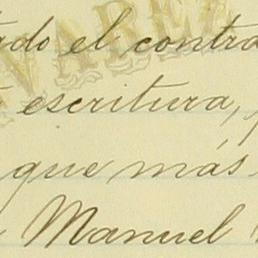 ado el contra
escritura,
que más
Manuel